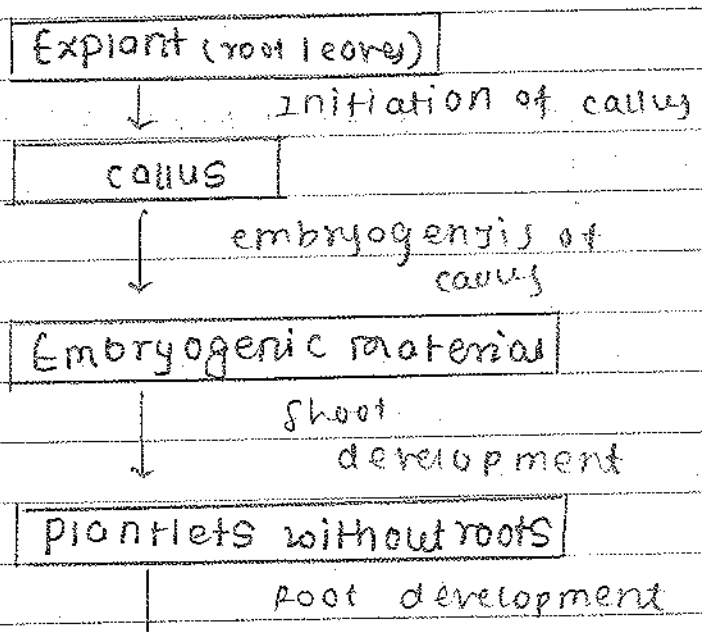 Explant (root leaves)
Initiation of callus
callus
embryogensis of
callus
Embryogenic material
Shoot
development
Plantlets without roots
Root development